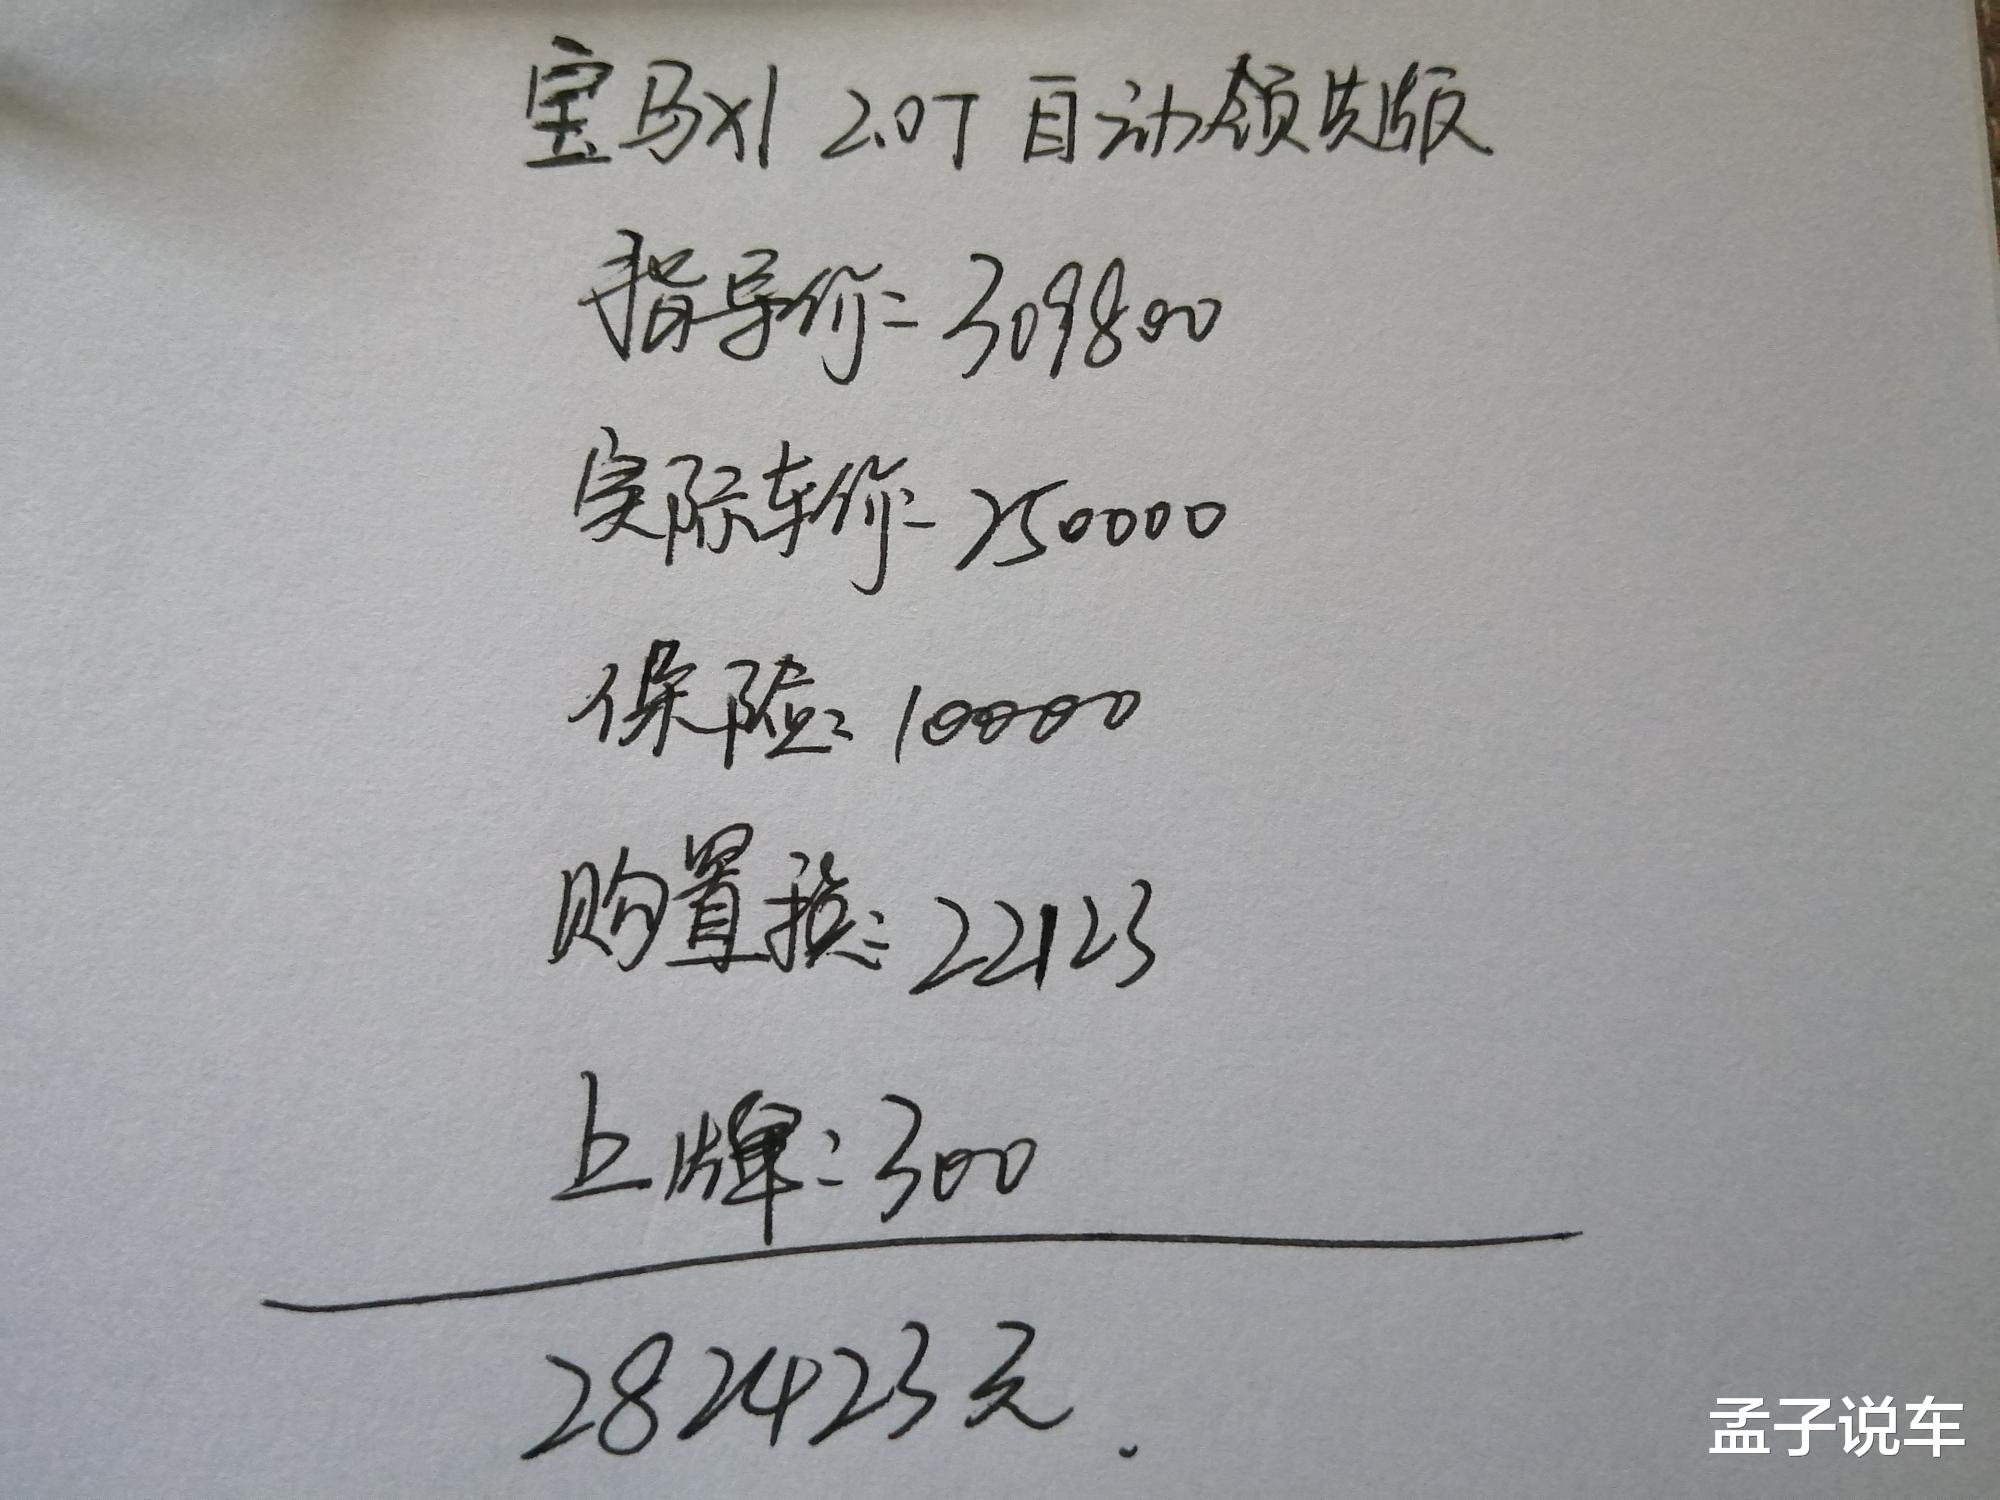 宝马x1 2.0T 自动领先版
指导价=309800
实际车价=250000
保险:10000
购置税:22123
上牌:300
282423元.
孟子说车